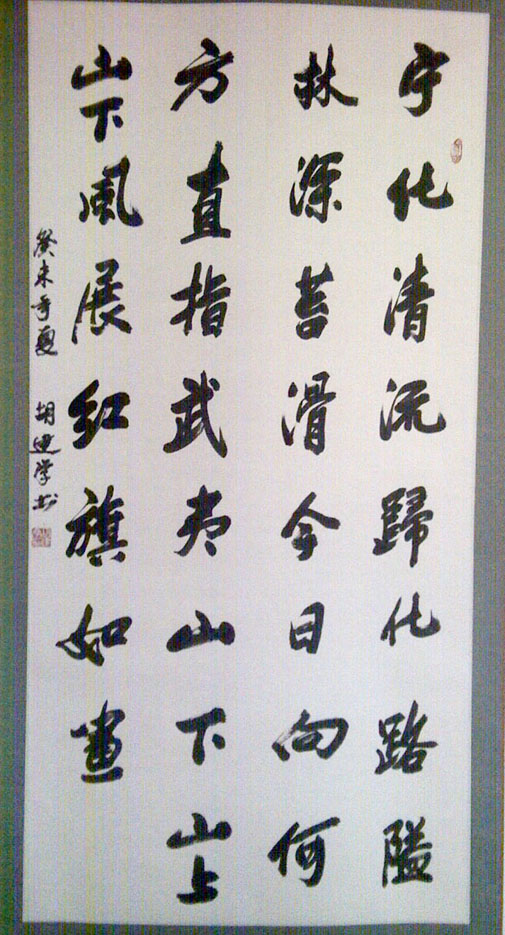 宁化清流歸化路隘
林深苔滑今日向何
方直指武夷山下山上
山下風展红旗如畫
癸未年夏 胡建学书